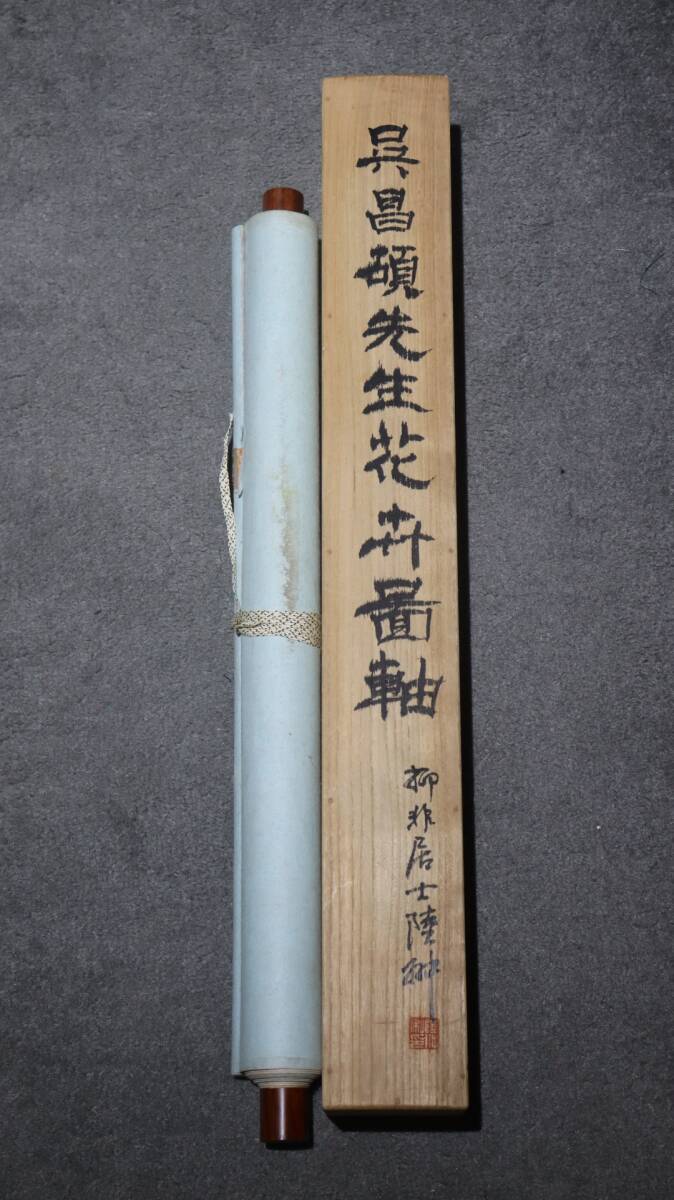 吳昌碩先生花卉圖軸
柳非居士陸